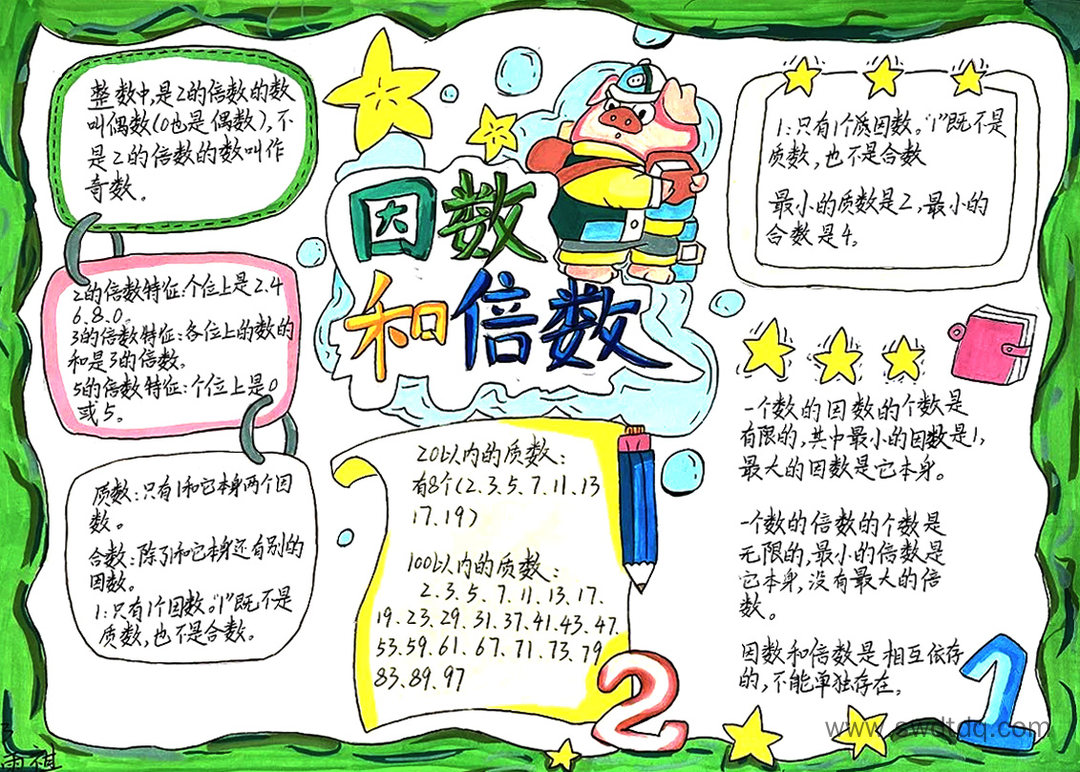 因数
和倍数
整数中,是2的倍数的数
叫偶数(0也是偶数),不
是2的倍数的数叫作
奇数。
2的倍数特征:个位上是2.4
6.8.0。
3的倍数特征:各位上的数的
和是3的倍数。
5的倍数特征:个位上是0
或5。
质数:只有1和它本身两个因
数。
合数:除了1和它本身还有别的
因数。
1:只有1个因数。"1"既不是
质数,也不是合数。
20以内的质数:
有8个(2、3、5、7、11、13
17、19)
100以内的质数:
2、3、5、7、11、13、17、
19、23、29、31、37、41、43、47、
53、59、61、67、71、73、79
83、89、97
1:只有1个质因数。"1"既不是
质数,也不是合数
最小的质数是2,最小的
合数是4。
一个数的因数的个数是
有限的,其中最小的因数是1,
最大的因数是它本身。
一个数的倍数的个数是
无限的,最小的倍数是
它本身,没有最大的倍
数。
因数和倍数是相互依存
的,不能单独存在。
2
1